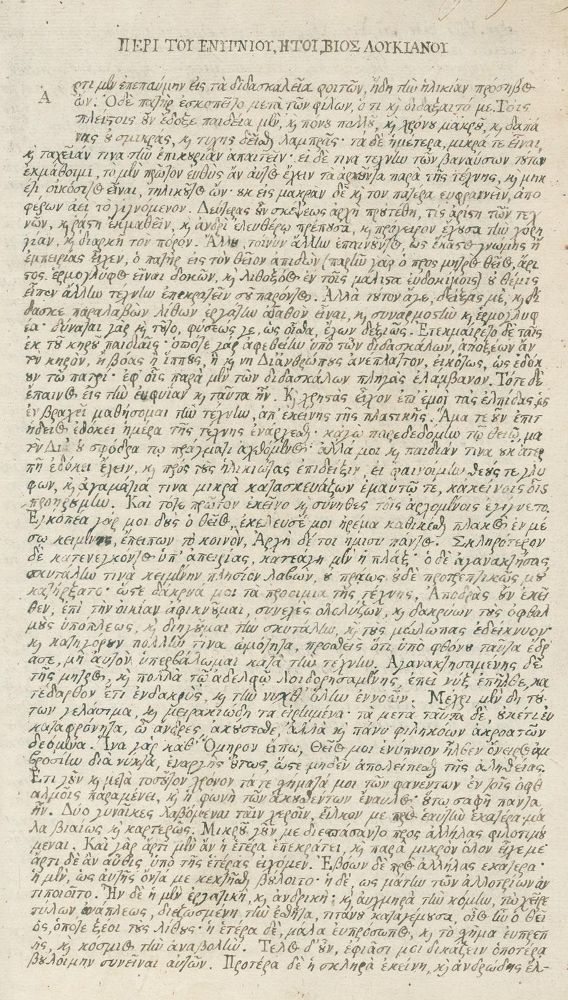 ΠΕΡΙ ΤΟΥ ΕΝΥΠΝΙΟΥ, ΗΤΟΙ, ΒΙΟΣ ΛΟΥΚΙΑΝΟΥ
Αρτι μὲν ἐπεπαύμην εἰς τὰ διδασκαλεῖα φοιτῶν, ἤδη τὴν ἡλικίαν πρόσηβος
ὤν. Ὁ δὲ πατὴρ ἐσκοπεῖτο μετὰ τῶν φίλων, ὅ τι ϗ διδάξαιτό με. Τοῖς
πλείστοις οὖν ἔδοξε παιδεία μὲν, ϗ πόνου πολλοῦ, ϗ χρόνου μακροῦ, ϗ δαπά
νης οὐ σμικρᾶς, ϗ τύχης δεῖσθαι λαμπρᾶς· τὰ δὲ ἡμέτερα, μικρά τε εἶναι,
ϗ ταχεῖάν τινα τὴν ἐπικουρίαν ἀπαιτεῖν· εἰ δέ τινα τέχνην τῶν βαναύσων τούτων
ἐκμάθοιμι, τὸ μὲν πρῶτον εὐθὺς ἂν αὐτὸς ἔχειν τὰ ἀρκοῦντα παρὰ τῆς τέχνης, ϗ μηκ
έτι οἰκόσιτος εἶναι, τηλικοῦτος ὤν· οὐκ εἰς μακρὰν δὲ ϗ τὸν πατέρα εὐφρανεῖν, ἀπο
φέρων ἀεὶ τὸ γιγνόμενον. Δευτέρας οὖν σκέψεως ἀρχὴ προυτέθη, τίς ἀρίστη τῶν τεχ
νῶν, ϗ ῥᾴστη ἐκμαθεῖν, ϗ ἀνδρὶ ἐλευθέρῳ πρέπουσα, ϗ πρόχειρον ἔχουσα τὴν χορη
γίαν, ϗ διαρκῆ τὸν πόρον. Ἄλλου τοίνυν ἄλλην ἐπαινοῦντος, ὡς ἕκαστος γνώμης ἢ
ἐμπειρίας εἶχεν, ὁ πατὴρ εἰς τὸν θεῖον ἀπιδὼν (παρῆν γὰρ ὁ πρὸς μητρὸς θεῖος, ἄρι
στος ἑρμογλύφος εἶναι δοκῶν, ϗ λιθοξόος ἐν τοῖς μάλιστα εὐδοκίμοις) οὐ θέμις
εἶπεν ἄλλην τέχνην ἐπικρατεῖν σοῦ παρόντος. Ἀλλὰ τοῦτον ἄγε, δείξας με, ϗ δί
δασκε παραλαβὼν λίθων ἐργάτην ἀγαθὸν εἶναι, ϗ συναρμοστὴν ϗ ἑρμογλυφ
έα· δύναται γὰρ ϗ τοῦτο, φύσεώς γε, ὡς οἶσθα, ἔχων δεξιῶς. Ἐτεκμαίρετο δὲ ταῖς
ἐκ τοῦ κηροῦ παιδιαῖς· ὁπότε γὰρ ἀφεθείην ὑπὸ τῶν διδασκάλων, ἀποξέων ἂν
τὸν κηρὸν, ἢ βόας ἢ ἵππους, ἢ ϗ νὴ Δί' ἀνθρώπους ἀνέπλαττον, εἰκότως, ὡς ἐδόκ
ουν τῷ πατρί· ἐφ' οἷς παρὰ μὲν τῶν διδασκάλων πληγὰς ἐλάμβανον. Τότε δὲ
ἔπαινος εἰς τὴν εὐφυΐαν ϗ ταῦτα ἦν. Κ χρηστὰς εἶχον ἐπ' ἐμοὶ τὰς ἐλπίδας, ὡς
ἐν βραχεῖ μαθήσομαι τὴν τέχνην, ἀπ' ἐκείνης τῆς πλαστικῆς. Ἅμα τε οὖν ἐπιτ
ήδειος ἐδόκει ἡμέρα τῆς τέχνης ἐνάρχεσθαι· κἀγὼ παρεδεδόμην τῷ θείῳ, μὰ
τὸν Δί' οὐ σφόδρα τῷ πράγματι ἀχθόμενος· ἀλλά μοι ϗ παιδιάν τινα οὐκ ἀτερ
πῆ ἐδόκει ἔχειν, ϗ πρὸς τοὺς ἡλικιώτας ἐπίδειξιν, εἰ φαινοίμην θεούς τε γλύ
φων, ϗ ἀγαλμάτιά τινα μικρὰ κατασκευάζων ἐμαυτῷ τε, κἀκείνοις οἷς
προῃρούμην. Καὶ τότε πρῶτον ἐκεῖνο ϗ σύνηθες τοῖς ἀρχομένοις ἐγίγνετο.
Ἐγκοπέα γάρ μοι δοὺς ὁ θεῖος, ἐκέλευσέ μοι ἠρέμα καθικέσθαι πλακὸς ἐν μέ
σῳ κειμένης, ἐπειπὼν τὸ κοινὸν, Ἀρχὴ δέ τοι ἥμισυ παντός. Σκληρότερον
δὲ κατενεγκόντος ὑπ' ἀπειρίας, κατεάγη μὲν ἡ πλάξ· ὁ δὲ ἀγανακτήσας,
σκυτάλην τινὰ κειμένην πλησίον λαβὼν, οὐ πράως οὐδὲ προτρεπτικῶς μου
κατήρξατο· ὥστε δάκρυά μοι τὰ προοίμια τῆς τέχνης. Ἀποδρὰς οὖν ἐκεῖ
θεν, ἐπὶ τὴν οἰκίαν ἀφικνοῦμαι, συνεχὲς ὀλολύζων, ϗ δακρύων τοὺς ὀφθαλ
μοὺς ὑπόπλεως, ϗ διηγοῦμαι τὴν σκυτάλην, ϗ τοὺς μώλωπας ἐδείκνυον·
ϗ κατηγόρουν πολλήν τινα ὠμότητα, προσθεὶς ὅτι ὑπὸ φθόνου ταῦτα ἔδρ
ασε, μὴ αὐτὸν ὑπερβάλωμαι κατὰ τὴν τέχνην. Ἀγανακτησαμένης δὲ
τῆς μητρὸς, ϗ πολλὰ τῷ ἀδελφῷ λοιδορησαμένης, ἐπεὶ νὺξ ἐπῆλθε, κα
τέδαρθον ἔτι ἔνδακρυς, ϗ τὴν νύχθ' ὅλην ἐννοῶν. Μέχρι μὲν δὴ τού
των γελάσιμα, ϗ μειρακιώδη τὰ εἰρημένα· τὰ μετὰ ταῦτα δὲ, οὐκέτι εὐ
καταφρόνητα, ὦ ἄνδρες, ἀκούσεσθε, ἀλλὰ ϗ πάνυ φιληκόων ἀκροατῶν
δεόμενα. Ἵνα γὰρ καθ' Ὅμηρον εἴπω, Θεῖός μοι ἐνύπνιον ἦλθεν ὄνειρος ἀμ
βροσίην διὰ νύκτα, ἐναργὴς οὕτως, ὥστε μηδὲν ἀπολείπεσθαι τῆς ἀληθείας.
Ἔτι γοῦν ϗ μετὰ τοσοῦτον χρόνον τά τε σχήματά μοι τῶν φανέντων ἐν τοῖς ὀφθ
αλμοῖς παραμένει, ϗ ἡ φωνὴ τῶν ἀκουσθέντων ἔναυλος· οὕτω σαφῆ πάντα
ἦν. Δύο γυναῖκες λαβόμεναι ταῖν χεροῖν, εἷλκόν με πρὸς ἑαυτὴν ἑκατέρα μά
λα βιαίως ϗ καρτερῶς. Μικροῦ γοῦν με διεσπάσαντο πρὸς ἀλλήλας φιλοτιμού
μεναι. Καὶ γὰρ ἄρτι μὲν ἂν ἡ ἑτέρα ἐπεκράτει, ϗ παρὰ μικρὸν ὅλον εἶχέ με·
ἄρτι δὲ ἂν αὖθις ὑπὸ τῆς ἑτέρας εἰχόμην. Ἐβόων δὲ πρὸς ἀλλήλας ἑκατέρα·
ἡ μὲν, ὡς αὐτῆς ὄντα με κεκτῆσθαι βούλοιτο· ἡ δὲ, ὡς μάτην τῶν ἀλλοτρίων ἀν
τιποιοῖτο. Ἦν δὲ ἡ μὲν ἐργατικὴ, ϗ ἀνδρικὴ· ϗ αὐχμηρὰ τὴν κόμην, τὼ χεῖρε
τύλων ἀνάπλεως, διεζωσμένη τὴν ἐσθῆτα, τιτάνου καταγέμουσα, οἷος ἦν ὁ θεῖ
ος, ὁπότε ξέοι τοὺς λίθους· ἡ ἑτέρα δὲ, μάλα εὐπρόσωπος, ϗ τὸ σχῆμα εὐπρεπ
ὴς, ϗ κόσμιος τὴν ἀναβολήν. Τέλος δ' οὖν, ἐφιᾶσί μοι δικάζειν ὁποτέρᾳ
βουλοίμην συνεῖναι αὐτῶν. Προτέρα δὲ ἡ σκληρὰ ἐκείνη, ϗ ἀνδρώδης ἔλ-